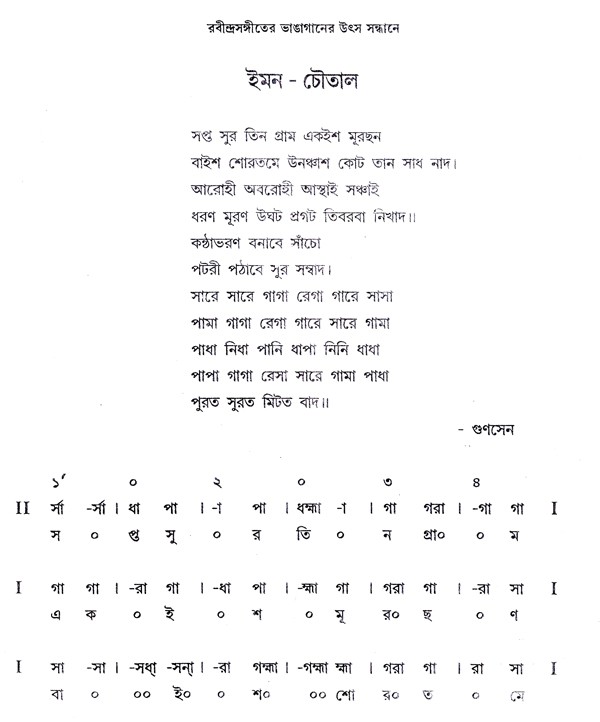 রবীন্দ্রসঙ্গীতের ভাঙাগানের উৎস সন্ধানে
ইমন - চৌতাল
সপ্ত সুর তিন গ্রাম একইশ মূরছন
বাইশ শোরতমে উনঞ্চাশ কোট তান সাধ নাদ।
আরোহী অবরোহী আস্থাই সঞ্চাই
ধরণ মূরণ উঘট প্রগট তিবরবা নিখাদ॥
কন্ঠাভরণ বনাবে সাঁচো
পটরী পঠাবে সুর সম্বাদ।
সারে সারে গাগা রেগা গারে সাসা
পামা গাগা রেগা গারে সারে গামা
পাধা নিধা পানি ধাপা নিনি ধাধা
পাপা গাগা রেসা সারে গামা পাধা
পুরত সুরত মিটত বাদ॥
- গুণসেন
১´ ০ ২ ০ ৩ ৪
II র্সা -র্সা । ধা পা । -া পা । ধহ্মা -া । গা গরা । -গা গা I
স ০ প্ত সু ০ র তি ০ ন গ্রা০ ০ ম
I গা গা । -রা গা । -ধা পা । -হ্মা গা । গরা গা । -রা সা I
এ ক ০ ই ০ শ ০ মূ র০ ছ ০ ণ
I সা -সা । -সধ্া -সন্া । -রা গহ্মা । -গহ্মা হ্মা । গরা গা । রা সা I
বা ০ ০০ ই০ ০ শ০ ০০ শো র০ ত ০ মে